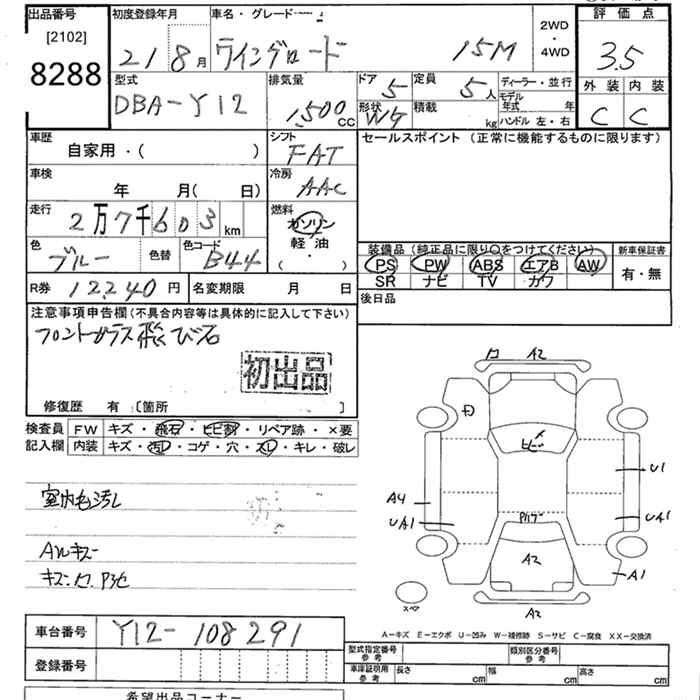 出品番号
[2102]
8288
初度登録年月
21 8月
車名・グレード
ウイングロード 15M
2WD
・
4WD
評価点
3.5
外装 内装
C C
型式
DBA-Y12
排気量
1,500
CC
ドア 5
形状 WG
定員 5人
積載 kg
ディーラー・並行
モデル
年式 年
ハンドル 左・右
車歴
自家用・( )
シフト
FAT
セールスポイント (正常に機能するものに限ります)
車検
年 月( 日)
冷房
AAC
走行
2万7千603km
燃料
ガソリン
軽油
( ・ )
色 ブルー 色替 色コード B44
装備品 (純正品に限り○をつけてください)
PS PW ABS エアB AW
SR ナビ TV カワ
新車保証書
有・無
R券 12,240円 名変期限 月 日
後日品
注意事項申告欄(不具合内容等は具体的に記入して下さい)
フロントガラス飛び石
初出品
修復歴 有 〔箇所 〕
検査員
記入欄
FW キズ・飛石・ヒビ割・リペア跡・×要
内装 キズ・汚レ・コゲ・穴・スレ・キレ・破レ
室内色汚レ
Aルキズ
A2
ヒビ
U1
A4
UA1
UA1
A2
A1
スペア
A2
A-キズ E-エクボ U-凹み W-補修跡 S-サビ C-腐食 XX-交換済
車台番号 Y12-108291
登録番号
型式指定番号
参考
類別区分番号
参考
車庫証明用
参考
長さ cm 幅 cm 高さ cm
希望出品コーナー